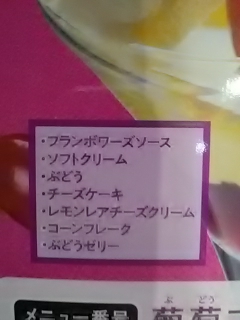 ・フランボワーズソース
・ソフトクリーム
・ぶどう
・チーズケーキ
・レモンレアチーズクリーム
・コーンフレーク
・ぶどうゼリー
メニュー番号
ぶ どう
葡萄